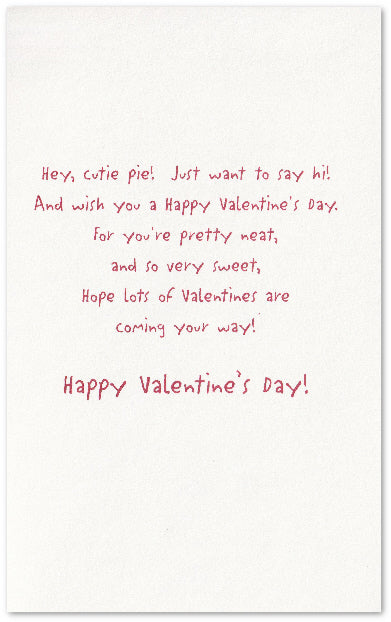 Hey, cutie pie!  Just want to say hi!
And wish you a Happy Valentine's Day.
For you're pretty neat,
and so very sweet,
Hope lots of Valentines are
coming your way!
Happy Valentine's Day!